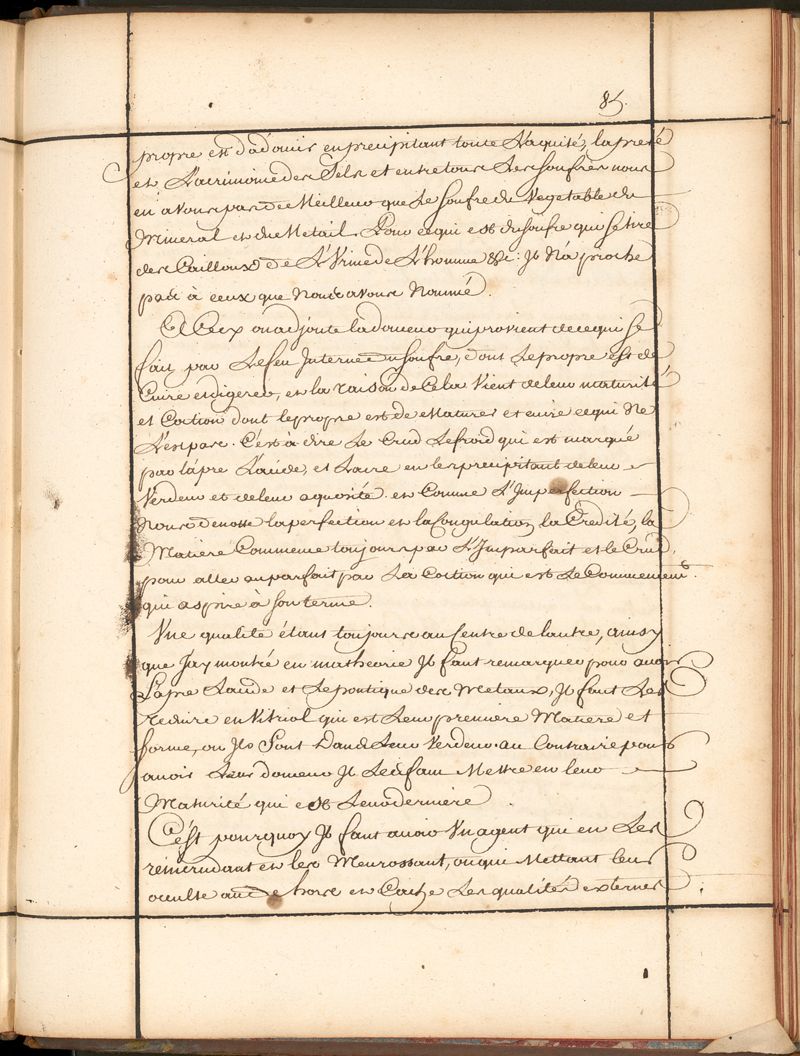 85.
propre est d'adoucir en precipitant toute L'aquité, lapreté
et L'acrimoinie des Sels et entre tous Les soufres nous
en avons pas de Meilleur que Le soufre du Vegetable du
Mineral et du Metail. Pour ce qui est du soufre qui se tire
des Cailloux de L'Vrine de L'homme &c: Jl N'aproche
pas à ceux que Nous avons Nommé.
on adjoute la douceur qui provient de ce qui se
fait par Le feu Jnterne du soufre, dont Le propre est de
Cuire et digerer, et la raison de Cela Vient de leur maturité
et Coction dont le propre est de Maturer et cuire ce qui Ne
L'est pas. C'est à dire Le Crud Le froid qui est marqué
par l'apre L'acide, et en les precipitant de leur
Verdeur et de leur aquosité. et Comme L'Jmperfection
Nous denotte la perfection et la Congulation la Crudité, la
Matiere Commence toujours par L'Jmparfait et le Crud,
pour aller au parfait par La Coction qui est Le Commencemt.
qui aspire à son terme.
Vne qualité étant toujours au Centre de lautre, ainsy
que J'ay montré en ma theorie Jl faut remarquer pour avoir
L'apre L'acide et Le pontique des Metaux, Jl faut Les
reduire en Vitriol qui est Leur premiere Matiere et
forme, ou Jls Sont Dans Leur Verdeur. au Contraire pour
avoir Leur douceur Jl Les faut Mettre en leur
Maturité qui est Leur derniere.
C'est pourquoy Jl faut avoir Vn agent qui en Les
reincrudant et les Meurissant, ou qui Mettant leur
oculte au dehors et Cache Les qualités externes